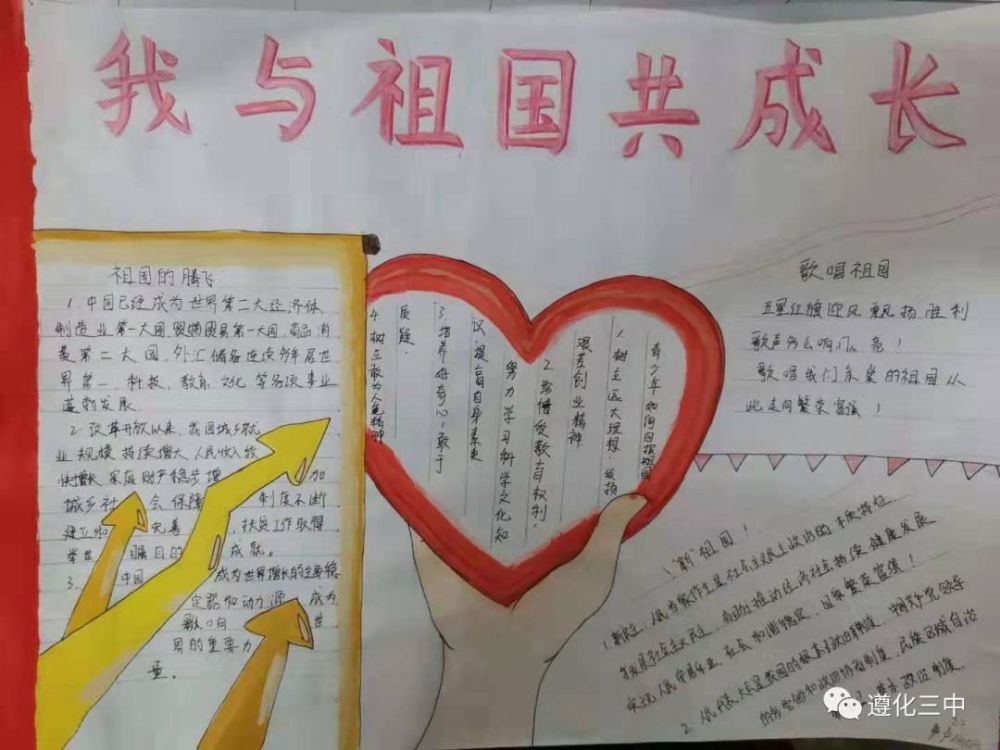 我与祖国共成长
祖国的腾飞
1. 中国已经成为世界第二大经济体
制造业第一大国,货物贸易第一大国,商品消
费第二大国,外汇储备连续多年居世
界第一,科技、教育、文化等各项事业
蓬勃发展.
2. 改革开放以来,我国城乡就
业规模持续增大,人民收入较
快增长,家庭财产稳步增加
城乡社会保障制度不断
建立和完善,扶贫工作取得
举世瞩目的成就。
3. 中国成为世界增长的主要稳
定器和动力源,成为
世
界的重要力
量。
青少年如何回报祖国
1. 树立远大理想,发扬
艰苦创业精神
2. 珍惜受教育权利,
努力学习科学文化知
识,提高自身素质
3. 培养好奇心,敢于
质疑.
4. 树立敢为人先精神
歌唱祖国
五星红旗迎风飘扬胜利
歌声多么响亮!
歌唱我们亲爱的祖国从
此走向繁荣富强!
"新"祖国!
1. 新民主,人民当家作主是社会主义民主政治的本质特征,
发展社会主义民主,有助于推动经济社会持续健康发展
实现人民安居乐业,社会和谐稳定,国家繁荣富强!
2. 人民代表大会是我国的根本政治制度,中国共产党领导
的多党合作和政治协商制度,民族区域自治
基本政治制度.
遵化三中